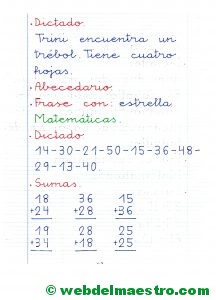 . Dictado.
Trini encuentra un
trébol. Tiene cuatro
hojas.
. Abecedario.
. Frase con: estrella
Matemáticas.
. Dictado
14-30-21-50-15-36-48-
29-13-40.
. Sumas.
18 36 15
+24 +28 +36
19 28 25
+34 +18 +25
© webdelmaestro.com